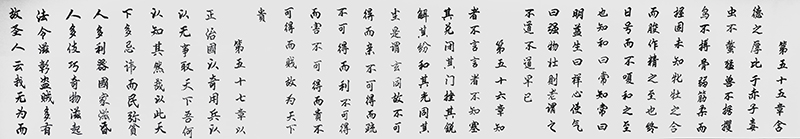 第五十五章含
德之厚比于赤子毒
虫不螫猛獸不據攫
鳥不搏骨弱筋柔而
握固未知牝牡之合
而朘作精之至也終
日号而不嗄和之至
也知和曰常知常曰
明益生曰祥心使氣
曰强物壯則老謂之
不道不道早已
第五十六章知
者不言言者不知塞
其兑閉其門挫其銳
解其紛和其光同其
塵是謂玄同故不可
得而親不可得而疏
不可得而利不可得
而害不可得而貴不
可得而賤故为天下
貴
第五十七章以
正治國以奇用兵以
以无事取天下吾何
以知其然哉以此天
下多忌諱而民弥貧
人多利器國家滋昏
人多伎巧奇物滋起
法令滋彰盗賊多有
故圣人云我无为而